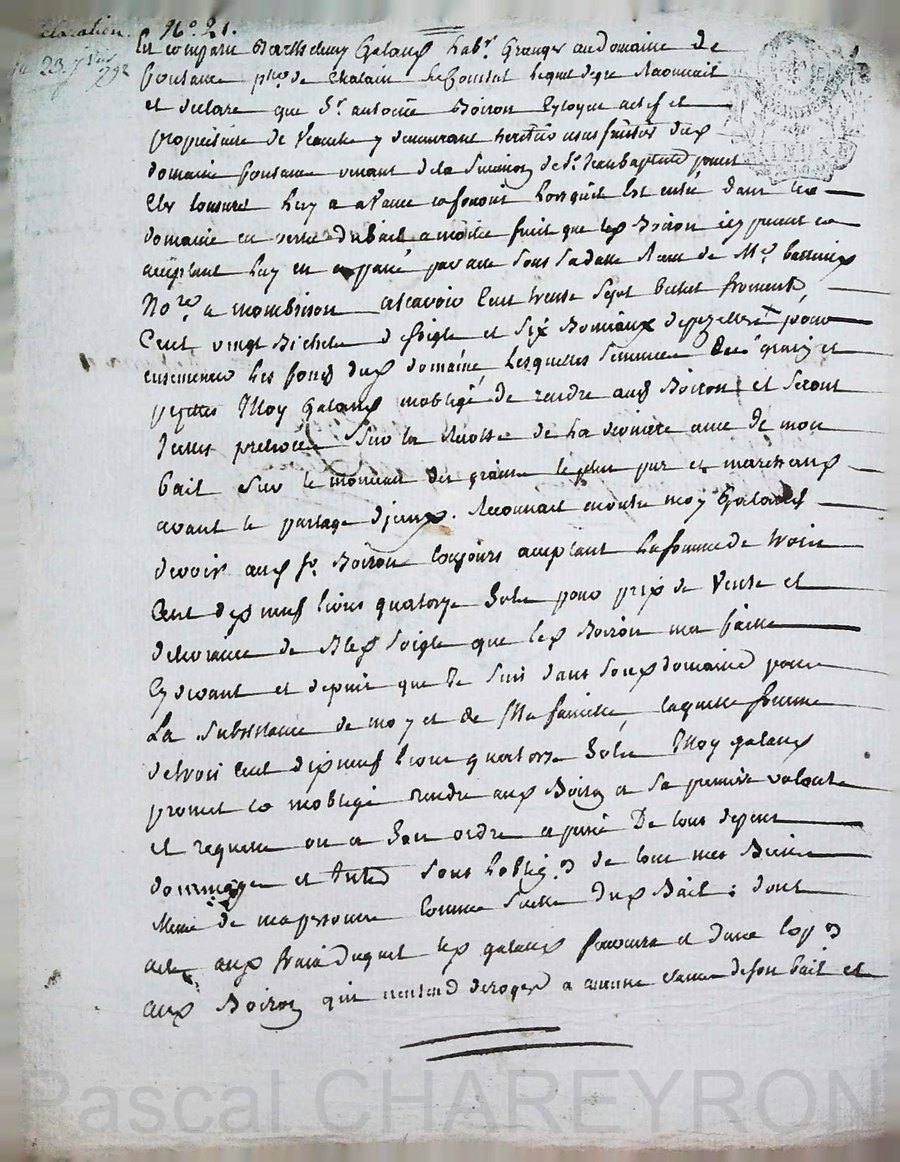 N.º 21.
23 j.vier
1792
Est comparu Barthelemy Galand lab.r Granger au domaine de
fontanne p.sse de Chalain Le Comtal lequel de gré Reconnait
et declare que S.r antoine Boiron Citoyen actif et
propriétaire de demeurant heritier usufruitier dud
domaine fontanne venant de la Sucession de S.r Jean baptiste
luy a avancé et fourni lorsqu'il est entré dans led
domaine en vertu du Bail a moitié fruit que led Boiron icy present et
acceptant luy en a passé par acte sous sa datte Reçu de M.e
No.re a montbrison, asçavoir Cent trente Sept bichet froment,
Cent vingt Bichets de Seigle et Six pour
ensemencer les fonds dud domaine, lesquelles Semences
Moy Galand m'oblige de rendre aud Boiron et Seront
prelevées Sur la Récolte de la derniere année de mon
bail sur le monceau des grains le plus pur et marchand
avant le partage d'iceux. Reconnait en outre moy Galand
devoir aud S.r Boiron toujours acceptant la somme de trois
Cent dix neuf livres quatorze Sols pour prix de Vente et
delivrance de Bled Seigle que led Boiron ma faitte
Cy devant et depuis que Je suis dans Son domaine pour
La Subsistance de moy et de Ma famille, laquelle Somme
de trois cent dix neuf livres quatorze Sols, Moy galand
promet et m'oblige rendre aud Boiron a sa premiere volonté
et requette ou a Son ordre a peine De tous depens
dommages et Interets Sous l'oblig.on de tous mes Biens
Meme de ma personne Comme Suitte dud Bail; dont
acte aux frais duquel led galand fournira
aud Boiron qui n'entend deroger a aucune clause de son bail et
Pascal CHAREYRON